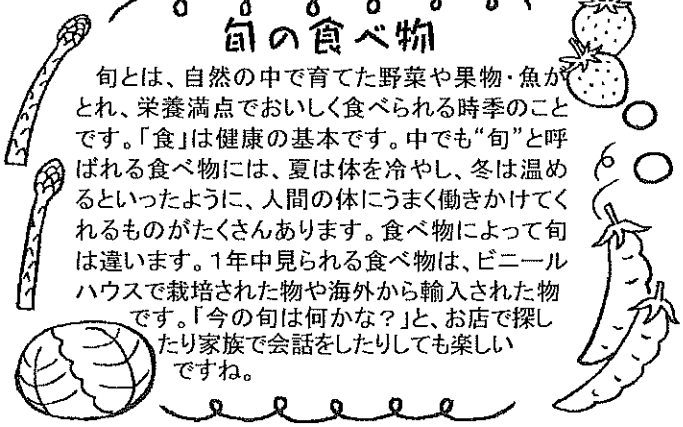 旬の食べ物
旬とは、自然の中で育てた野菜や果物・魚が
とれ、栄養満点でおいしく食べられる時季のこと
です。「食」は健康の基本です。中でも“旬”と呼
ばれる食べ物には、夏は体を冷やし、冬は温め
るといったように、人間の体にうまく働きかけてく
れるものがたくさんあります。食べ物によって旬
は違います。1年中見られる食べ物は、ビニール
ハウスで栽培された物や海外から輸入された物
です。「今の旬は何かな？」と、お店で探し
たり家族で会話をしたりしても楽しい
ですね。